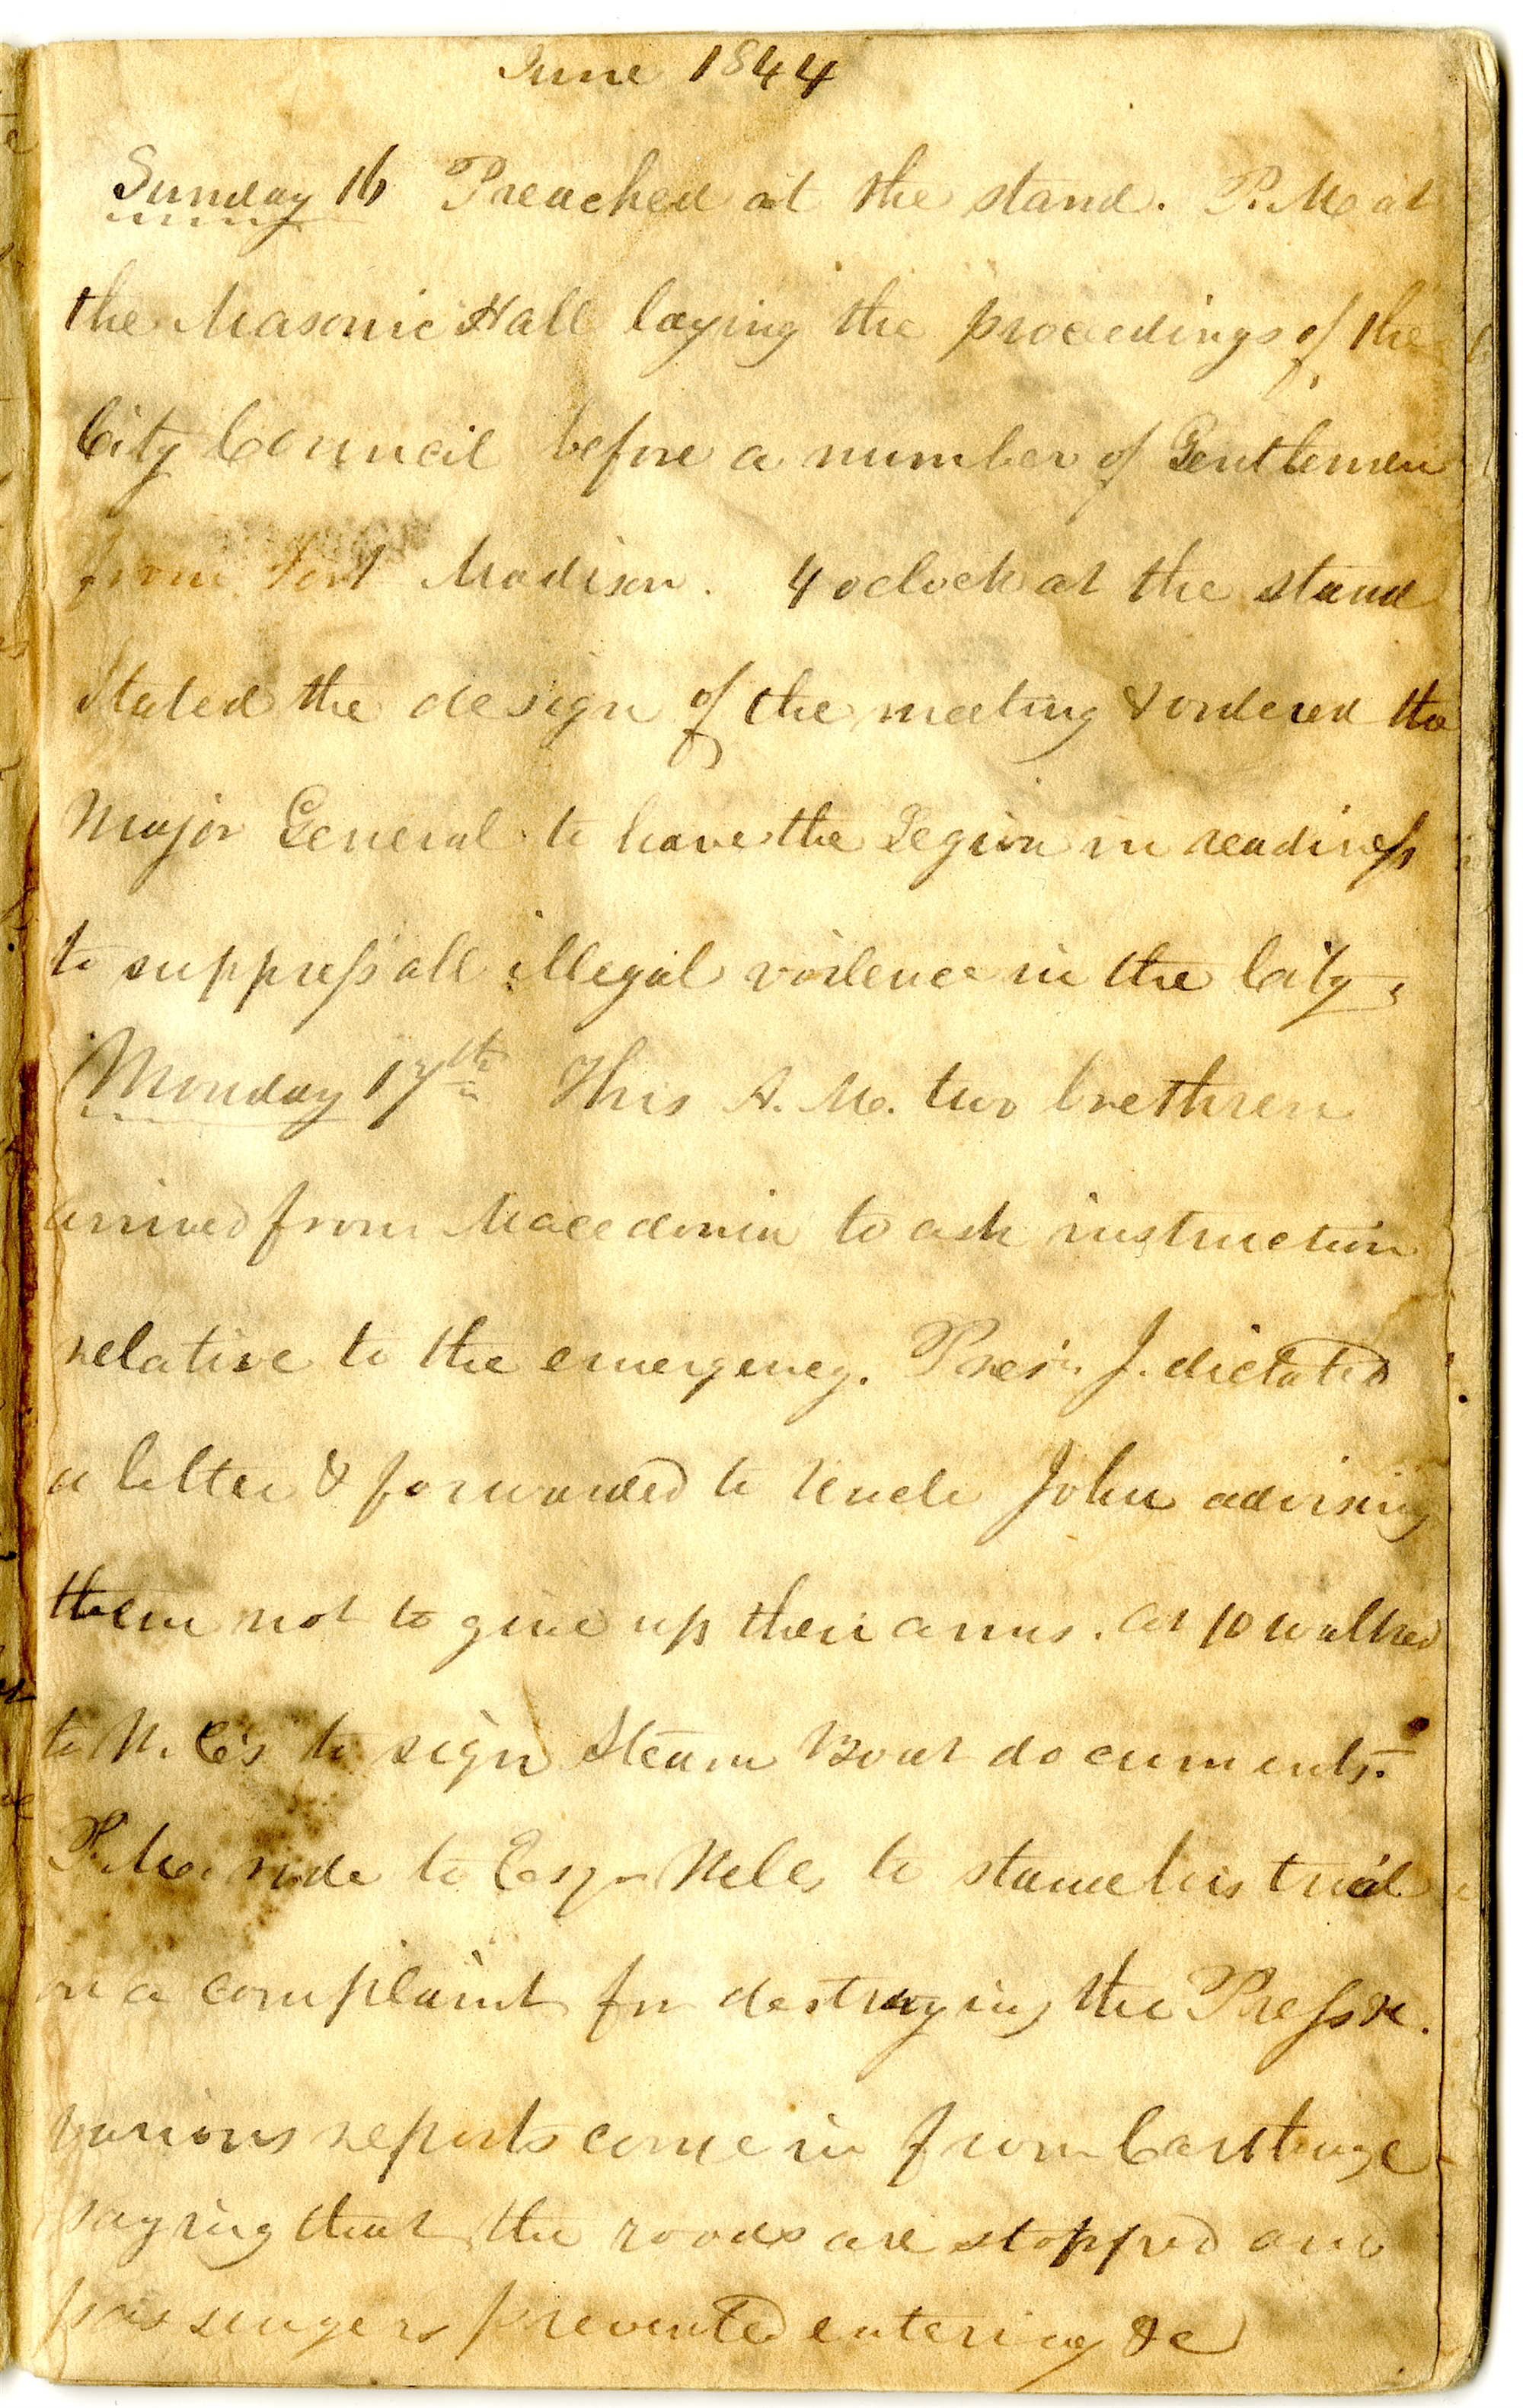 June 1844
Sunday 16 Preached at the stand. P.M at
the Masonic Hall laying the proceedings of the
City Council before a number of Gentlemen
from Fort Madison. 4 oclock at the stand
Stated the design of the meeting & ordered the
Major General to have the Legion in readiness
to suppress all illegal voilence in the City,
Monday 17th This A. M. two brethren
arrived from Macedonia to ask instruction
relative to the emergency. Pres. J. dictated
a letter & forwarded to Uncle John advising
them not to give up their arms. at 10 walked
to W. C's to sign Steam Boat documents.
P.M. rode to Esqr Wells to stand his trial
on a complaint for destroying the Press &c.
various reports come in from Carthage
saying that the roads are stopped and
passengers prevented entering &c